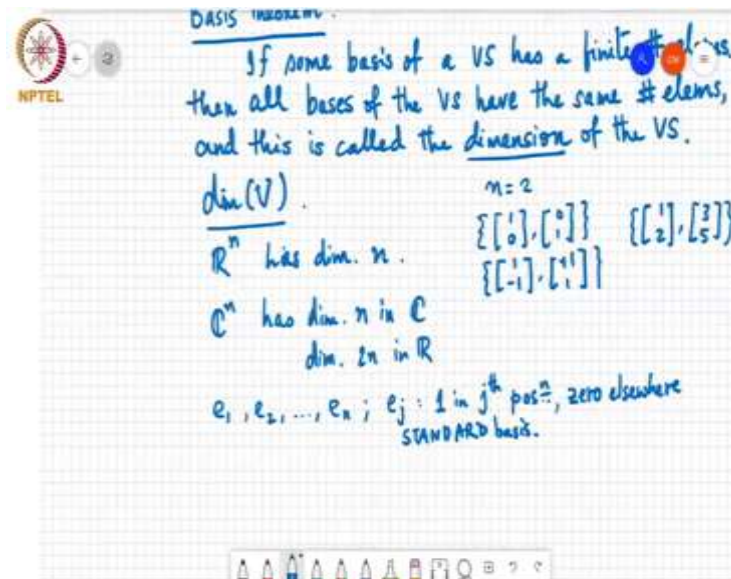 Basis Theorem.
If some basis of a VS has a finite # elems,
then all bases of the VS have the same # elems,
and this is called the dimension of the VS.
dim(V).
n=2
{[1 0], [0 1]} {[1 2], [3 5]}
ℝⁿ has dim. n.
ℂⁿ has dim. n in ℂ
dim. 2n in ℝ
e₁, e₂, ..., eₙ ; eⱼ : 1 in jᵗʰ posⁿ, zero elsewhere
STANDARD basis.
NPTEL